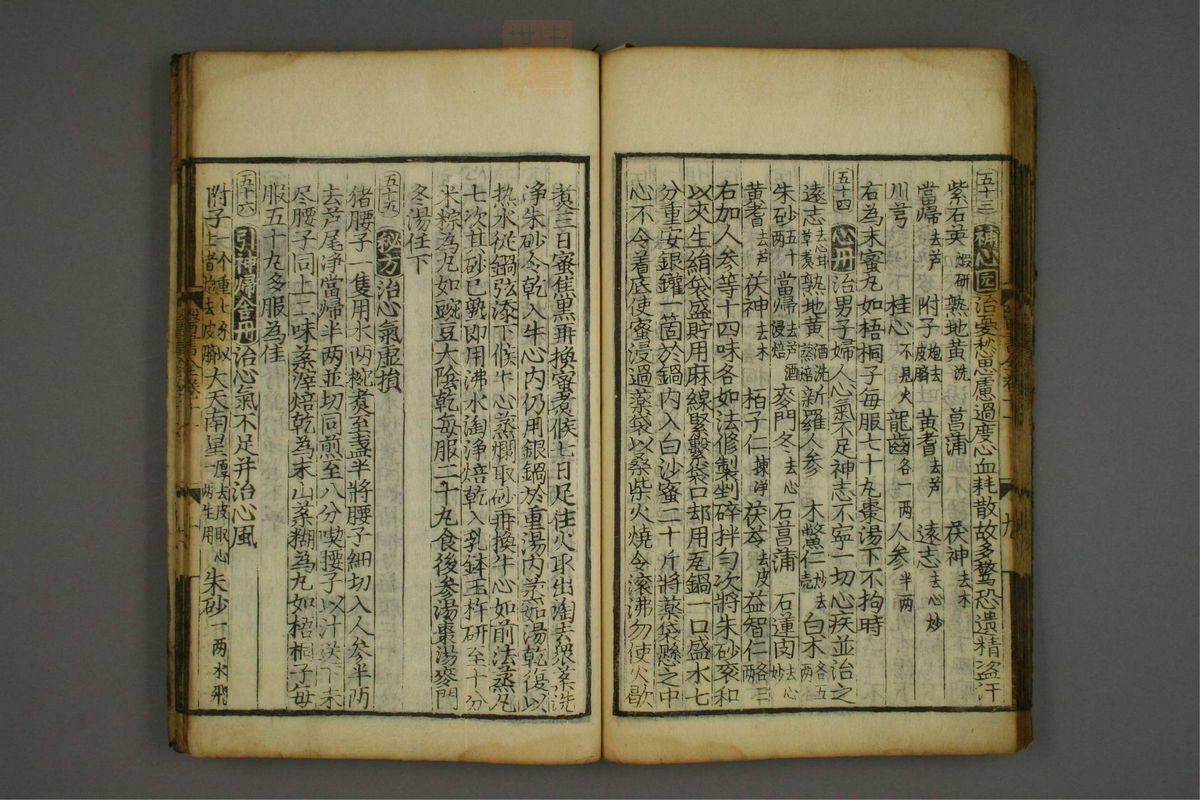 五十三 補心圓 治憂愁思慮過度心血耗散故多驚恐遺精盗汗
紫石英 煆研 熟地黄 洗 菖蒲 茯神 去木
當歸 去芦 附子 炮去皮臍 黄耆 去芦 遠志 去心炒
川芎 桂心 不見火 龍齒 各一两 人参 半两
右為末蜜丸如梧桐子每服七十丸棗湯下不拘時
五十四 心丹 治男子婦人心氣不足神志不寧一切心疾並治之
遠志 去心耳草煮 熟地黄 酒洗蒸焙 新羅人参 木鱉仁 炒去壳 白术 各五两
朱砂 五十两 當歸 去芦酒浸焙 麥門冬 去心 石菖蒲 石蓮肉 去心炒
黄耆 去芦 茯神 去木 栢子仁 揀浄 茯苓 去皮 益智仁 各三两
右加人参等十四味各如法修製剉碎拌匀次將朱砂衮和
以夾生絹袋盛貯用麻線緊繫袋口却用瓦鍋一口盛水七
分重安銀鑵一箇於鍋内入白沙蜜二十斤將薬袋懸之中
心不令着底使蜜浸過薬袋以桑柴火燒令滚沸勿使火歇
煑三日蜜焦黒再換蜜煑候七日足住火取出淘去衆薬洗
浄朱砂令乾入牛心内仍用銀鍋於重湯内蒸如湯乾復以
热水從鍋弦添下候牛心蒸爛取砂再換牛心如前法蒸凢
七次其砂已熟即用沸水淘浄焙乾入乳鉢玉杵研至十分
米粽為丸如豌豆大陰乾每服二十丸食後参湯棗湯麥門
冬湯任下
五十五 秘方 治心氣虚損
猪腰子一隻用水两椀煑至盞半將腰子細切入人参半两
去芦尾浄當歸半两並切同煎至八分喫腰子以汁送下未
尽腰子同上二味薬滓焙乾為末山薬糊為丸如梧桐子每
服五十丸多服為佳
五十六 引神歸舎丹 治心氣不足并治心風
附子 一个重七分以上者炮去皮臍 大天南星 厚去皮取心一两生用 朱砂 一两水飛